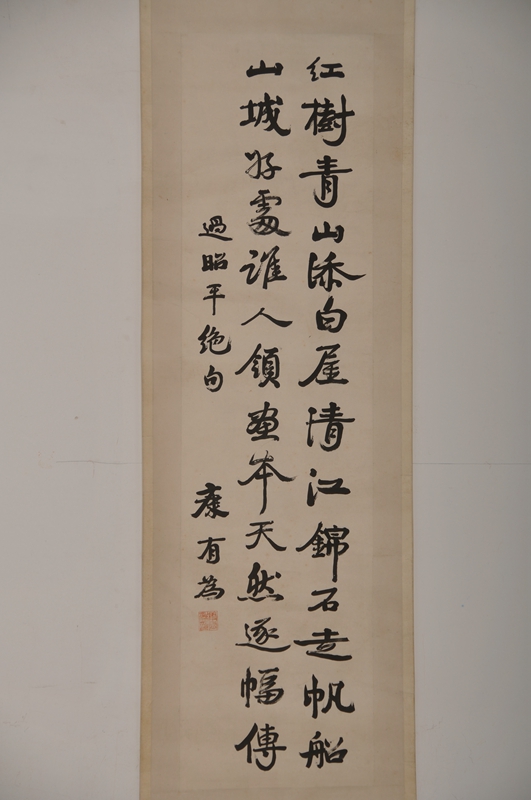 紅樹青山添白屋清江錦石走帆船
山城好處誰人領畫本天然逐幅傳
過昭平絶句
康有為